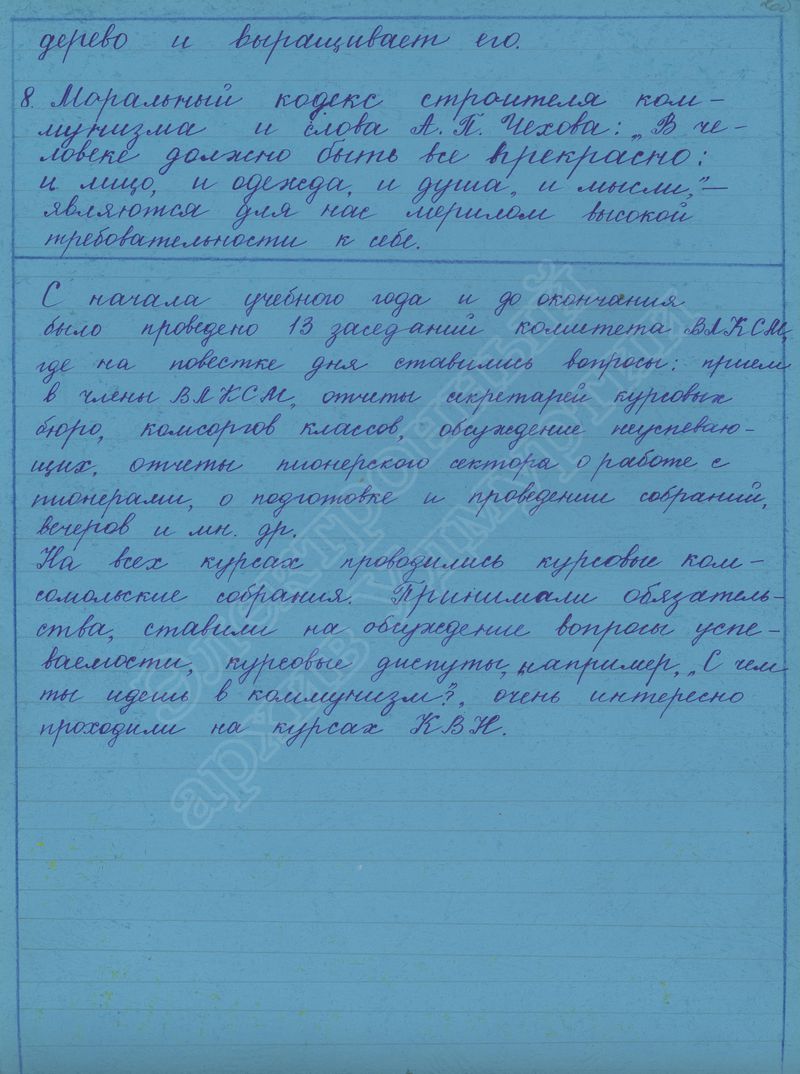 дерево и выращивает его.
8. Моральный кодекс строителя ком-
мунизма и слова А. П. Чехова: „В че-
ловеке должно быть все прекрасно:
и лицо, и одежда, и душа, и мысли,"—
являются для нас мерилом высокой
требовательности к себе.
С начала учебного года и до окончания
было проведено 13 заседаний комитета ВЛКСМ,
где на повестке дня ставились вопросы: прием
в члены ВЛКСМ, отчеты секретарей курсовых
бюро, комсоргов классов, обсуждение неуспеваю-
щих, отчеты пионерского сектора о работе с
пионерами, о подготовке и проведении собраний,
вечеров и мн. др.
На всех курсах проводились курсовые ком-
сомольские собрания. Принимали обязатель-
ства, ставили на обсуждение вопросы успе-
ваемости, курсовые диспуты, например, „С чем
ты идешь в коммунизм?", очень интересно
проходили на курсах КВН.
Электронный
архив Удмуртии